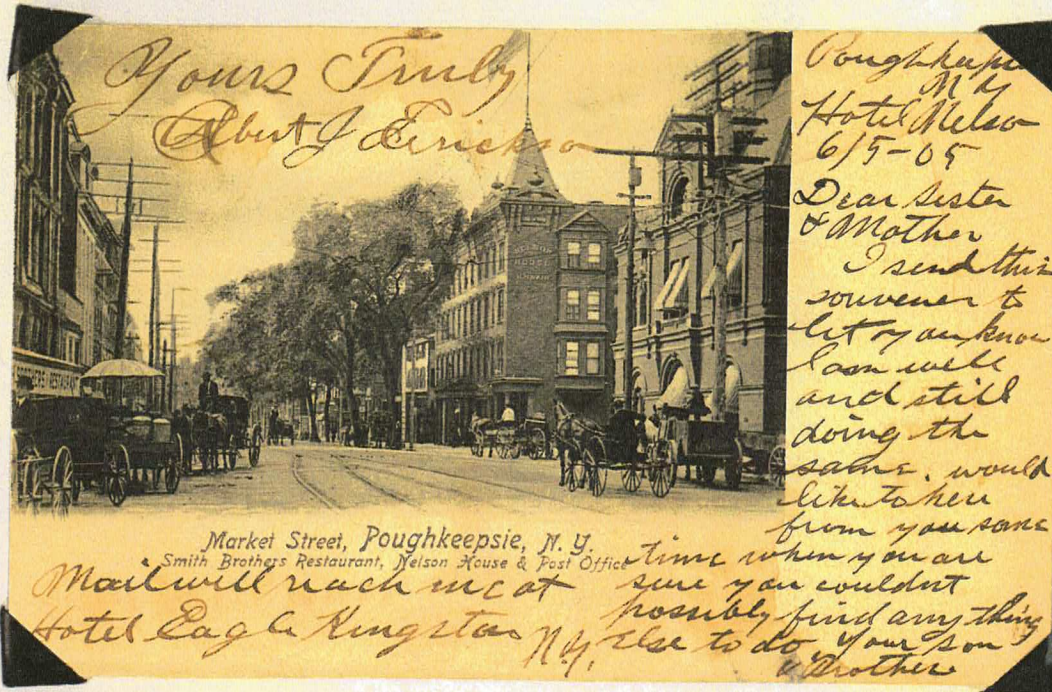 Yours Truly
Albert J Erickson
Poughkeepsie
N Y
Hotel Nelson
6/5-05
Dear Sister
& Mother
I send this
souvener to
let you know
I am well
and still
doing the
same. would
like to here
from you some
time when you are
sure you couldnt
possibly find any thing
else to do, Your son
& Brother
HOUSE
BROTHERS RESTAURANT
Market Street, Poughkeepsie, N. Y.
Smith Brothers Restaurant, Nelson House & Post Office
Mail will reach me at
Hotel Eagle Kingston N.Y.